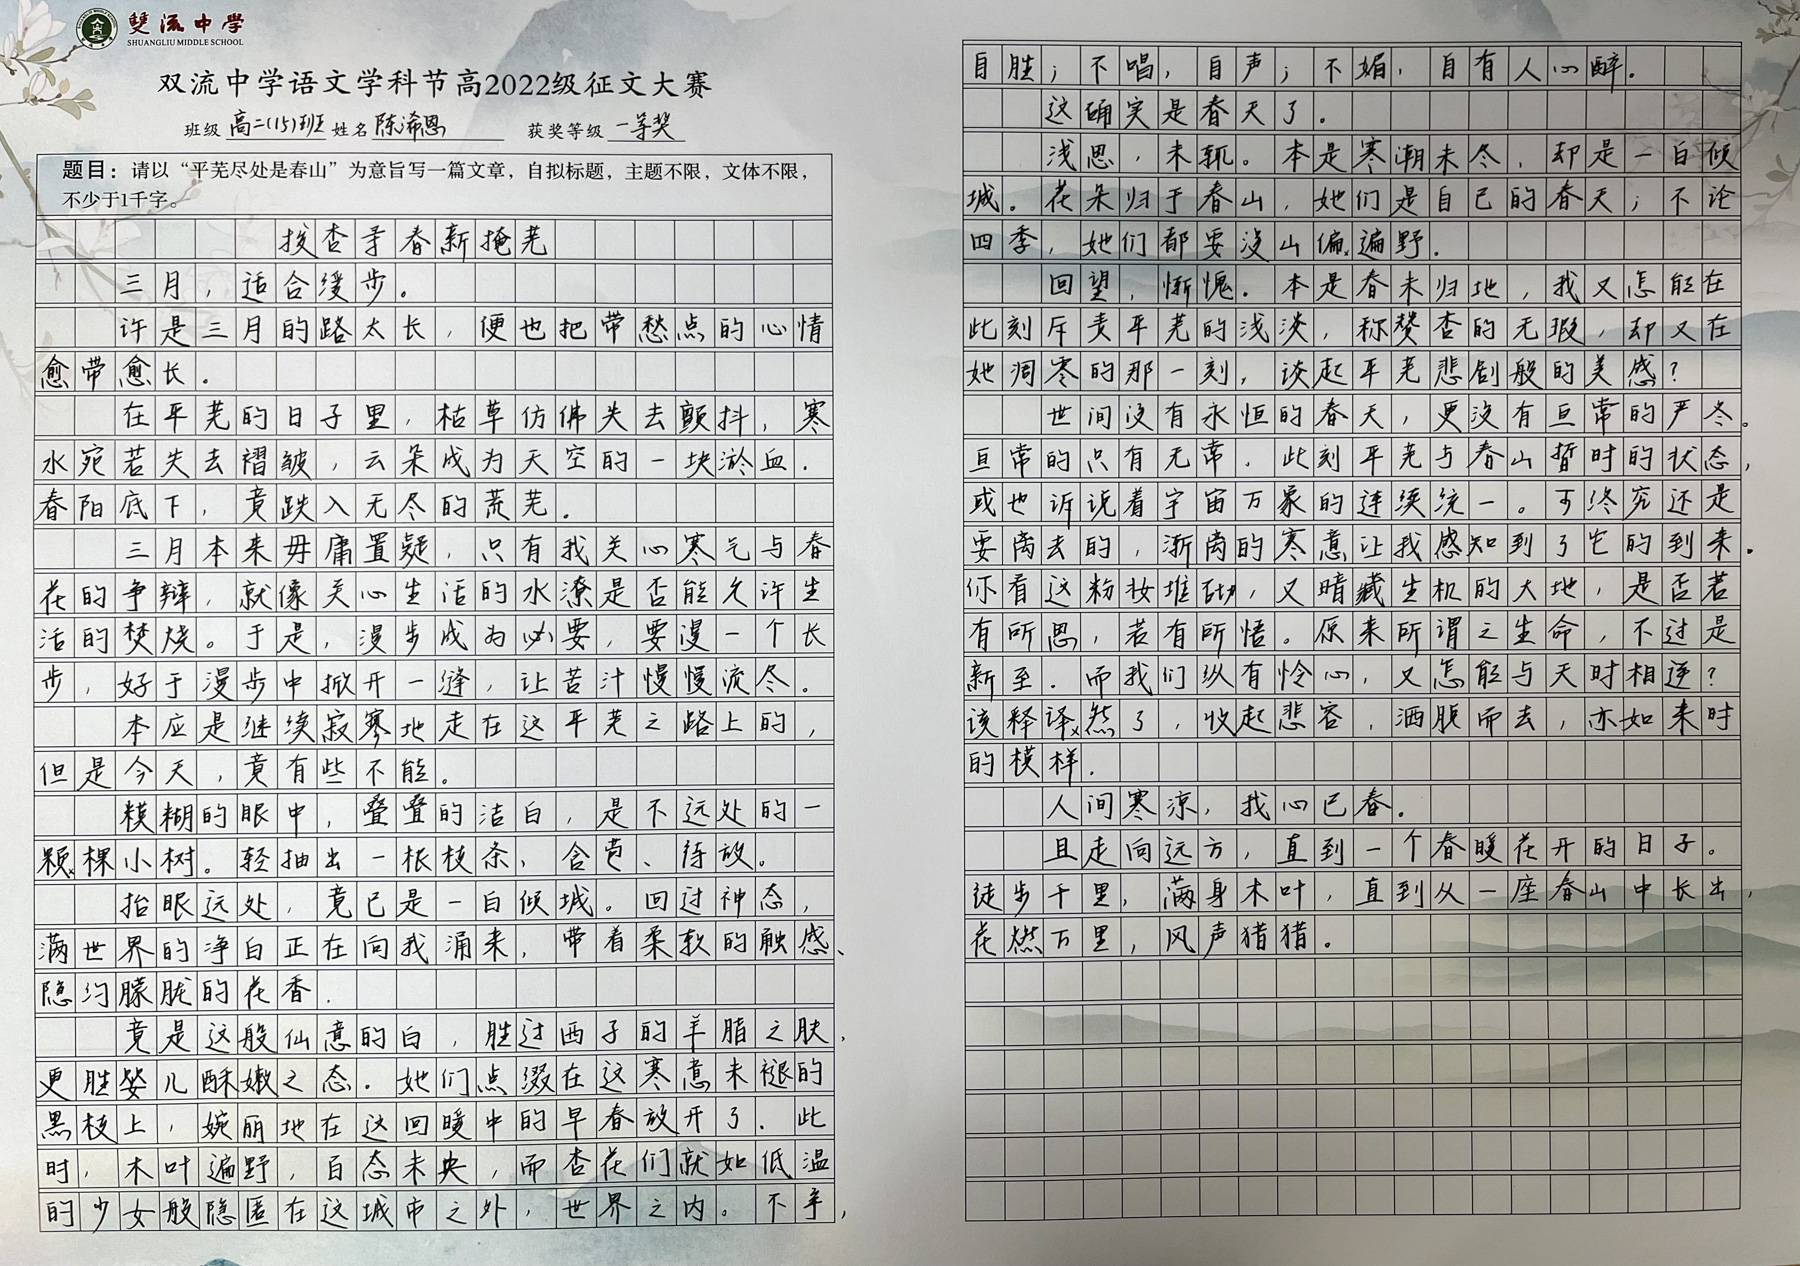 雙流中學
SHUANGLIU MIDDLE SCHOOL
双流中学语文学科节高2022级征文大赛
班级 高二(15)班 姓名 陈浠恩 获奖等级 一等奖
题目：请以“平芜尽处是春山”为意旨写一篇文章，自拟标题，主题不限，文体不限，
不少于1千字。
拨杏寻春新掩芜
三月，适合缓步。
许是三月的路太长，便也把带愁点的心情
愈带愈长。
在平芜的日子里，枯草仿佛失去颤抖，寒
水宛若失去褶皱，云朵成为天空的一块淤血.
春阳底下，竟跌入无尽的荒芜.
三月本来毋庸置疑，只有我关心寒气与春
花的争辩，就像关心生活的水潦是否能允许生
活的焚烧。于是，漫步成为必要，要漫一个长
步，好于漫步中掀开一缝，让苦汁慢慢流尽。
本应是继续寂寥地走在这平芜之路上的，
但是今天，竟有些不能。
模糊的眼中，叠叠的洁白，是不远处的一
颗棵小树。轻抽出一根枝条，含苞、待放。
抬眼远处，竟已是一白倾城。回过神态，
满世界的净白正在向我涌来，带着柔软的触感、
隐约朦胧的花香.
竟是这般仙意的白，胜过西子的羊脂之肤，
更胜婴儿酥嫩之态.她们点缀在这寒意未褪的
黑枝上，婉丽地在这回暖中的早春放开了.此
时，木叶遍野，百态未央，而杏花们就如低温
的少女般隐匿在这城市之外，世界之内。不争，
自胜；不唱，自声；不媚，自有人心醉.
这确实是春天了.
浅思，未辄。本是寒潮未冬，却是一白倾
城.花朵归于春山，她们是自己的春天；不论
四季，她们都要漫山偏遍野.
回望，惭愧.本是春未归地，我又怎能在
此刻斥责平芜的浅淡，称赞杏的无瑕，却又在
她凋零的那一刻，谈起平芜悲创般的美感？
世间没有永恒的春天，更没有亘常的严冬。
亘常的只有无常.此刻平芜与春山暂时的状态，
或也诉说着宇宙万象的连续统一。可终究还是
要离去的，渐离的寒意让我感知到了它的到来.
你看这粉妆堆砌，又暗藏生机的大地，是否若
有所思，若有所悟。原来所谓之生命，不过是
新至.而我们纵有怜心，又怎能与天时相逆？
该释译然了，收起悲容，洒脱而去，亦如来时
的模样.
人间寒凉，我心已春.
且走向远方，直到一个春暖花开的日子。
徒步千里，满身木叶，直到从一座春山中长出，
花燃万里，风声猎猎.